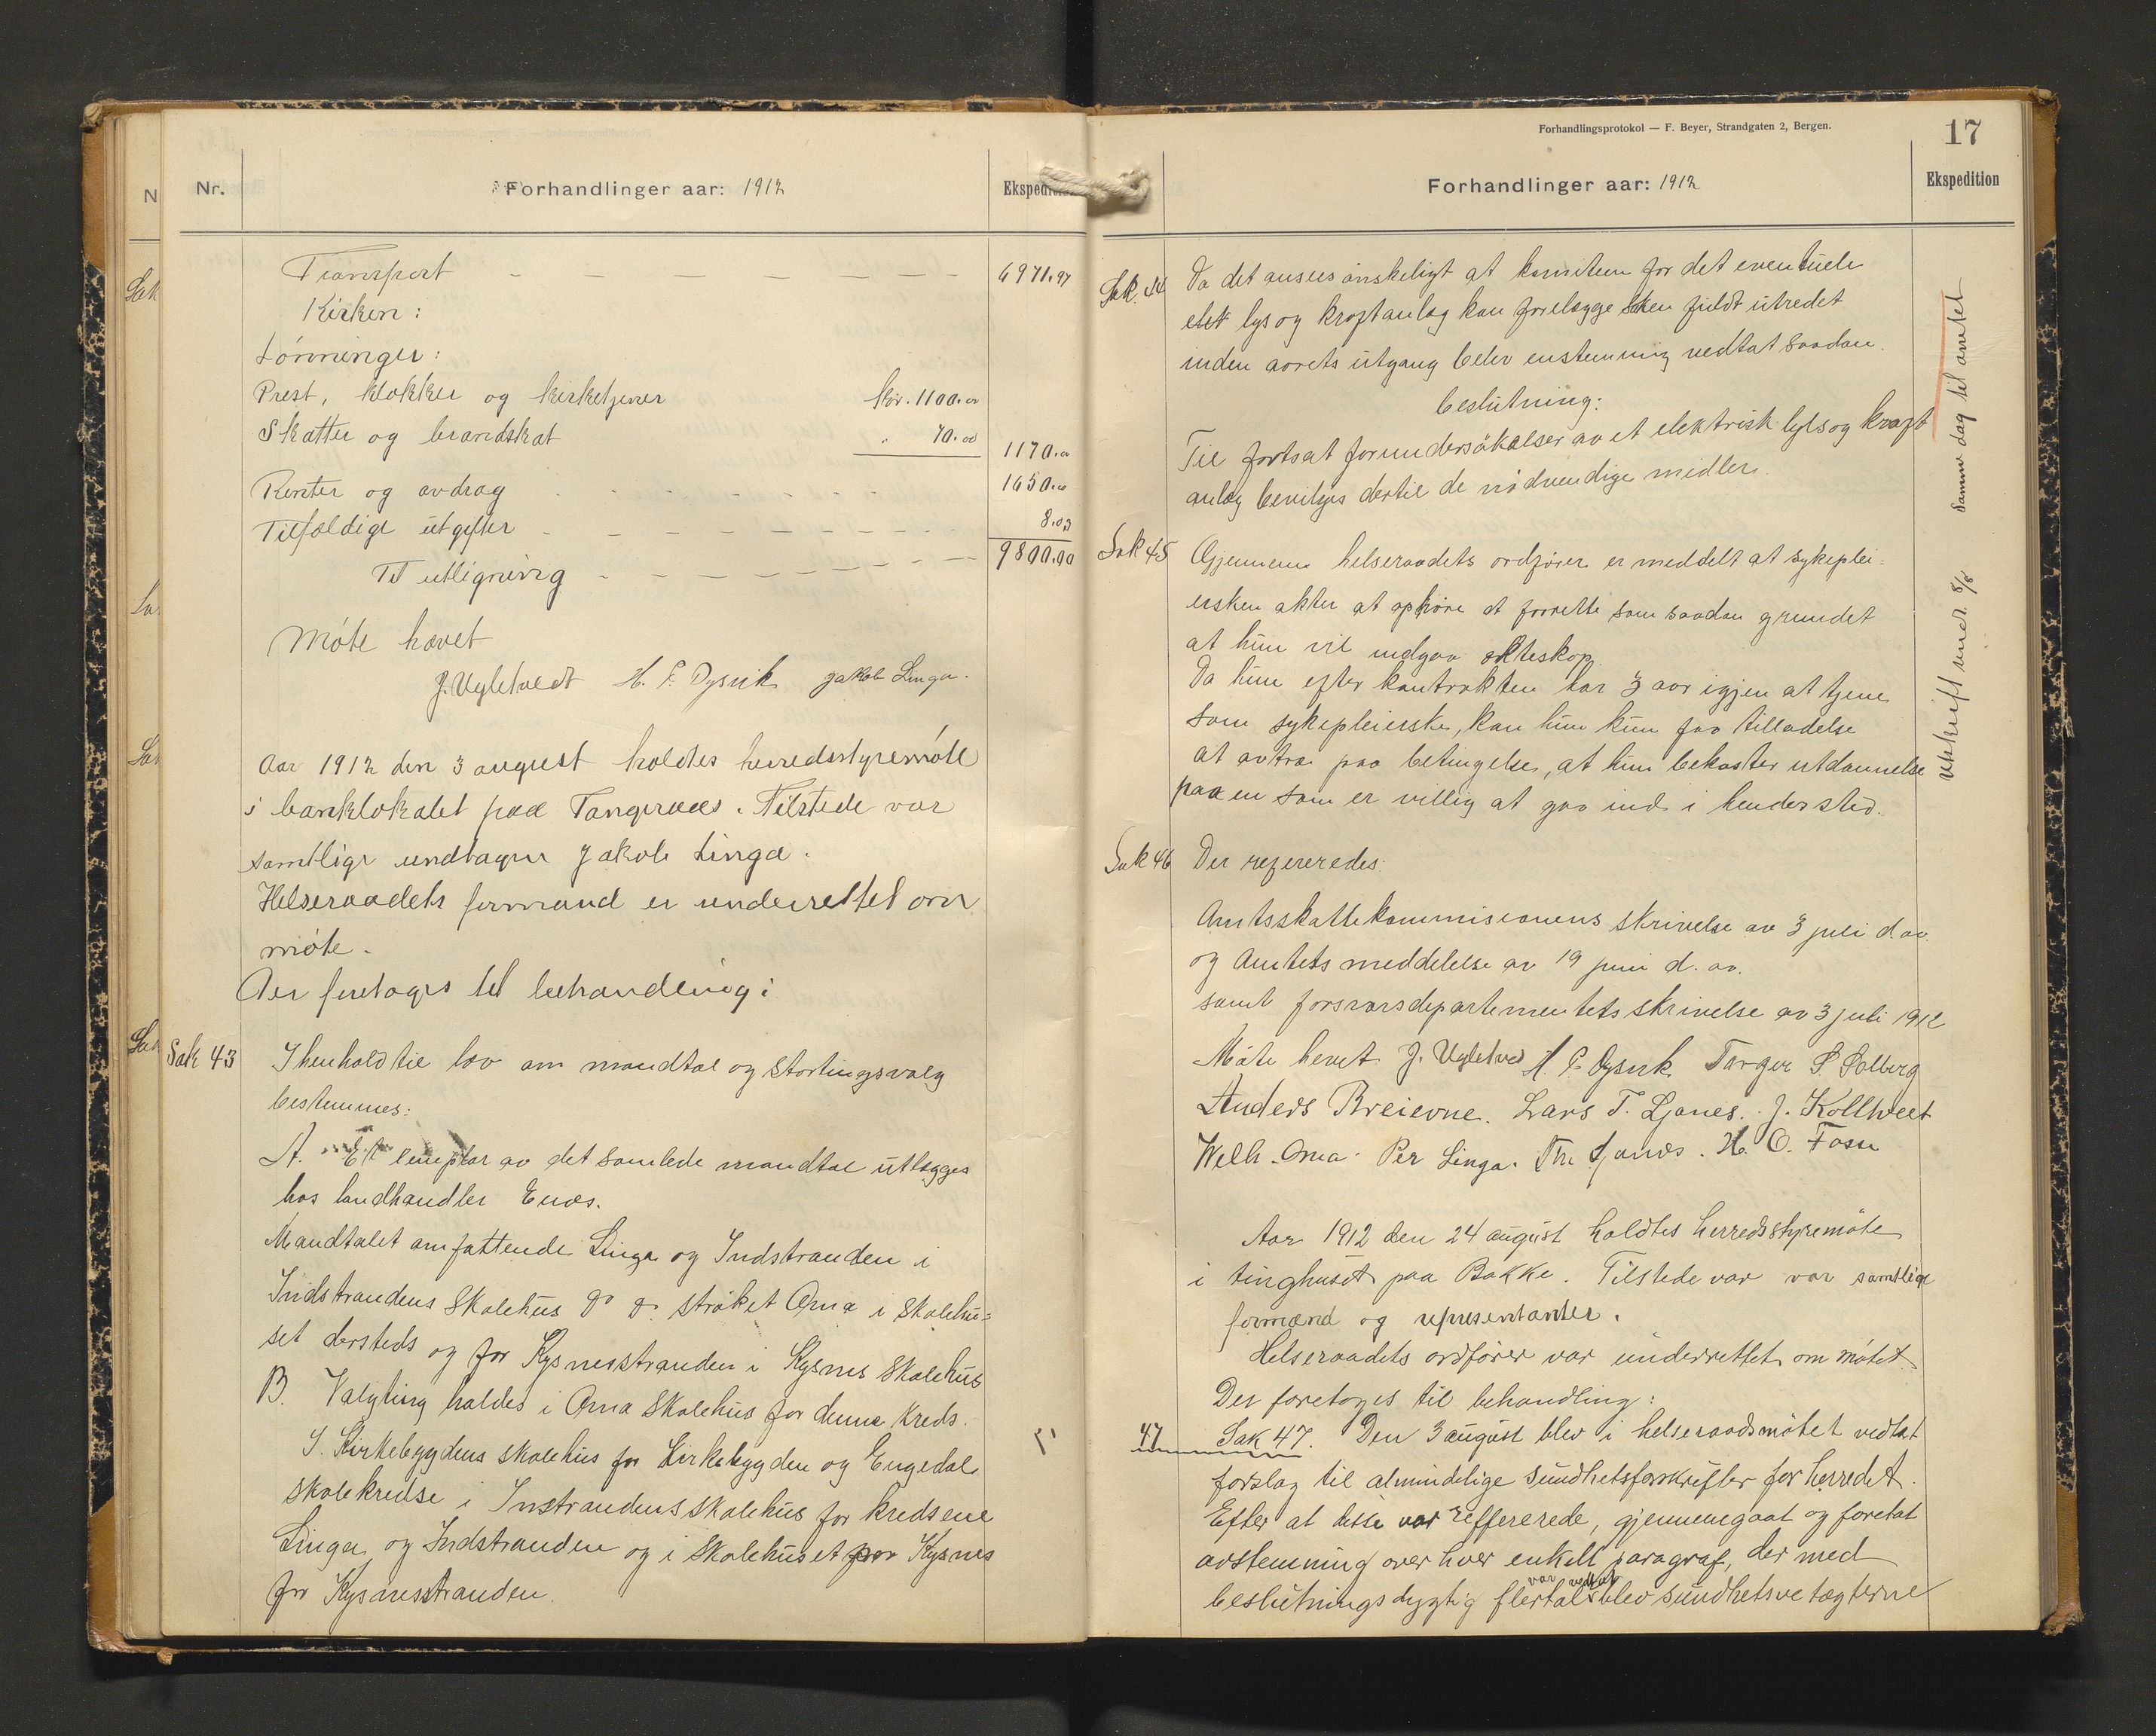 Nr.
Forhandlinger aar: 1912
Ekspedition
Transport — — — — — — — — 6971.97
Kirken:
Lønninger:
Prest, klokker og kirketjener kr. 1100.00
Skatter og brandskat " 70.00 1170.00
Renter og avdrag 1650.00
Tilfældige utgifter — — — — — — — 8.03
Til utligning — — — — — — — 9800.00
Møte hævet
J. Ugletvedt H. P. Dysvik Jakob Linga.
Aar 1912 den 3 august holdtes herredsstyremøte
i banklokalet paa Tangeraas. Tilstede var
samtlige undtagen Jakob Linga.
Helseraadets formand er underrettet om
møte.
Der foretoges til behandling:
Sak 43
I henhold til lov om mandtal og stortingsvalg
bestemmes:
A. Et eksemplar av det samlede mandtal utlægges
hos landhandler Enæs.
Mandtalet omfattende Linga og Indstranden i
Indstrandens Skolehus do do strøket Oma i skolehu=
set dersteds og for Kysnesstranden i Kysnes Skolehus
B. Valgting holdes i Oma Skolehus for denne Kreds.
I Kirkebygdens skolehus for Kirkebygden og Engedal
skolekredse i Instrandens skolehus for kredsene
Linga og Indstranden og i skolehuset paa Kysnes
for Kysnesstranden.
Forhandlingsprotokol — F. Beyer, Strandgaten 2, Bergen.
17
Forhandlinger aar: 1912
Ekspedition
Sak. 44
Da det ansees ønskeligt at komiteen for det eventuele
elek lys og kraftanlæg kan forelægge saken fuldt utredet
inden aarets utgang belev enstemmig vedtat saadan
beslutning:
Til fortsat forundersøkelser av et elektrisk lys og kraft
anlæg bevilges dertil de nødvendige midler.
Sak 45
Gjennem helseraadets ordfører er meddelt at sykeplei=
ersken akter at ophøre at forrette som saadan grundet
at hun vil indgaa ekteskap.
Da hun efter kontrakten har 3 aar igjen at tjene
som sykepleierske, kan hun kun faa tilladelse
at avtræ paa betingelse, at hun bekoster utdannelse
paa en som er villig at gaa ind i hendes sted.
Utskrift sendt 8/8 samme dag til amtet
Sak 46
Der refereredes:
Amtsskattekommisionens skrivelse av 3 juli d. aa.
og Amtets meddelelse av 19 juni d. aa.
samt forsvarsdepartementets skrivelse av 3 juli 1912
Møte hevet J. Ugletved H. P. Dysvik Torger S. Solberg
Anders Breievne. Lars T. Ljones. J. Kolltveit
Welh. Oma. Per Linga. Th. Ljones. H. O. Fosse
Aar 1912 den 24 august holdtes herredsstyremøte
i tinghuset paa Bakke. Tilstede var var samtlige
formænd og representanter.
Helseraadets ordfører var underrettet om møtet.
Der foretoges til behandling:
47
Sak 47. Den 3 august blev i helseraadsmøtet vedtat
forslag til almindelige sundhetsforskrifter for herredet.
Efter at disse var reffererede, gjennemgaat og foretat
avstemning over hver enkelt paragraf, der med
beslutningsdygtig flertal var vedtat blev sundhetsvetægterne